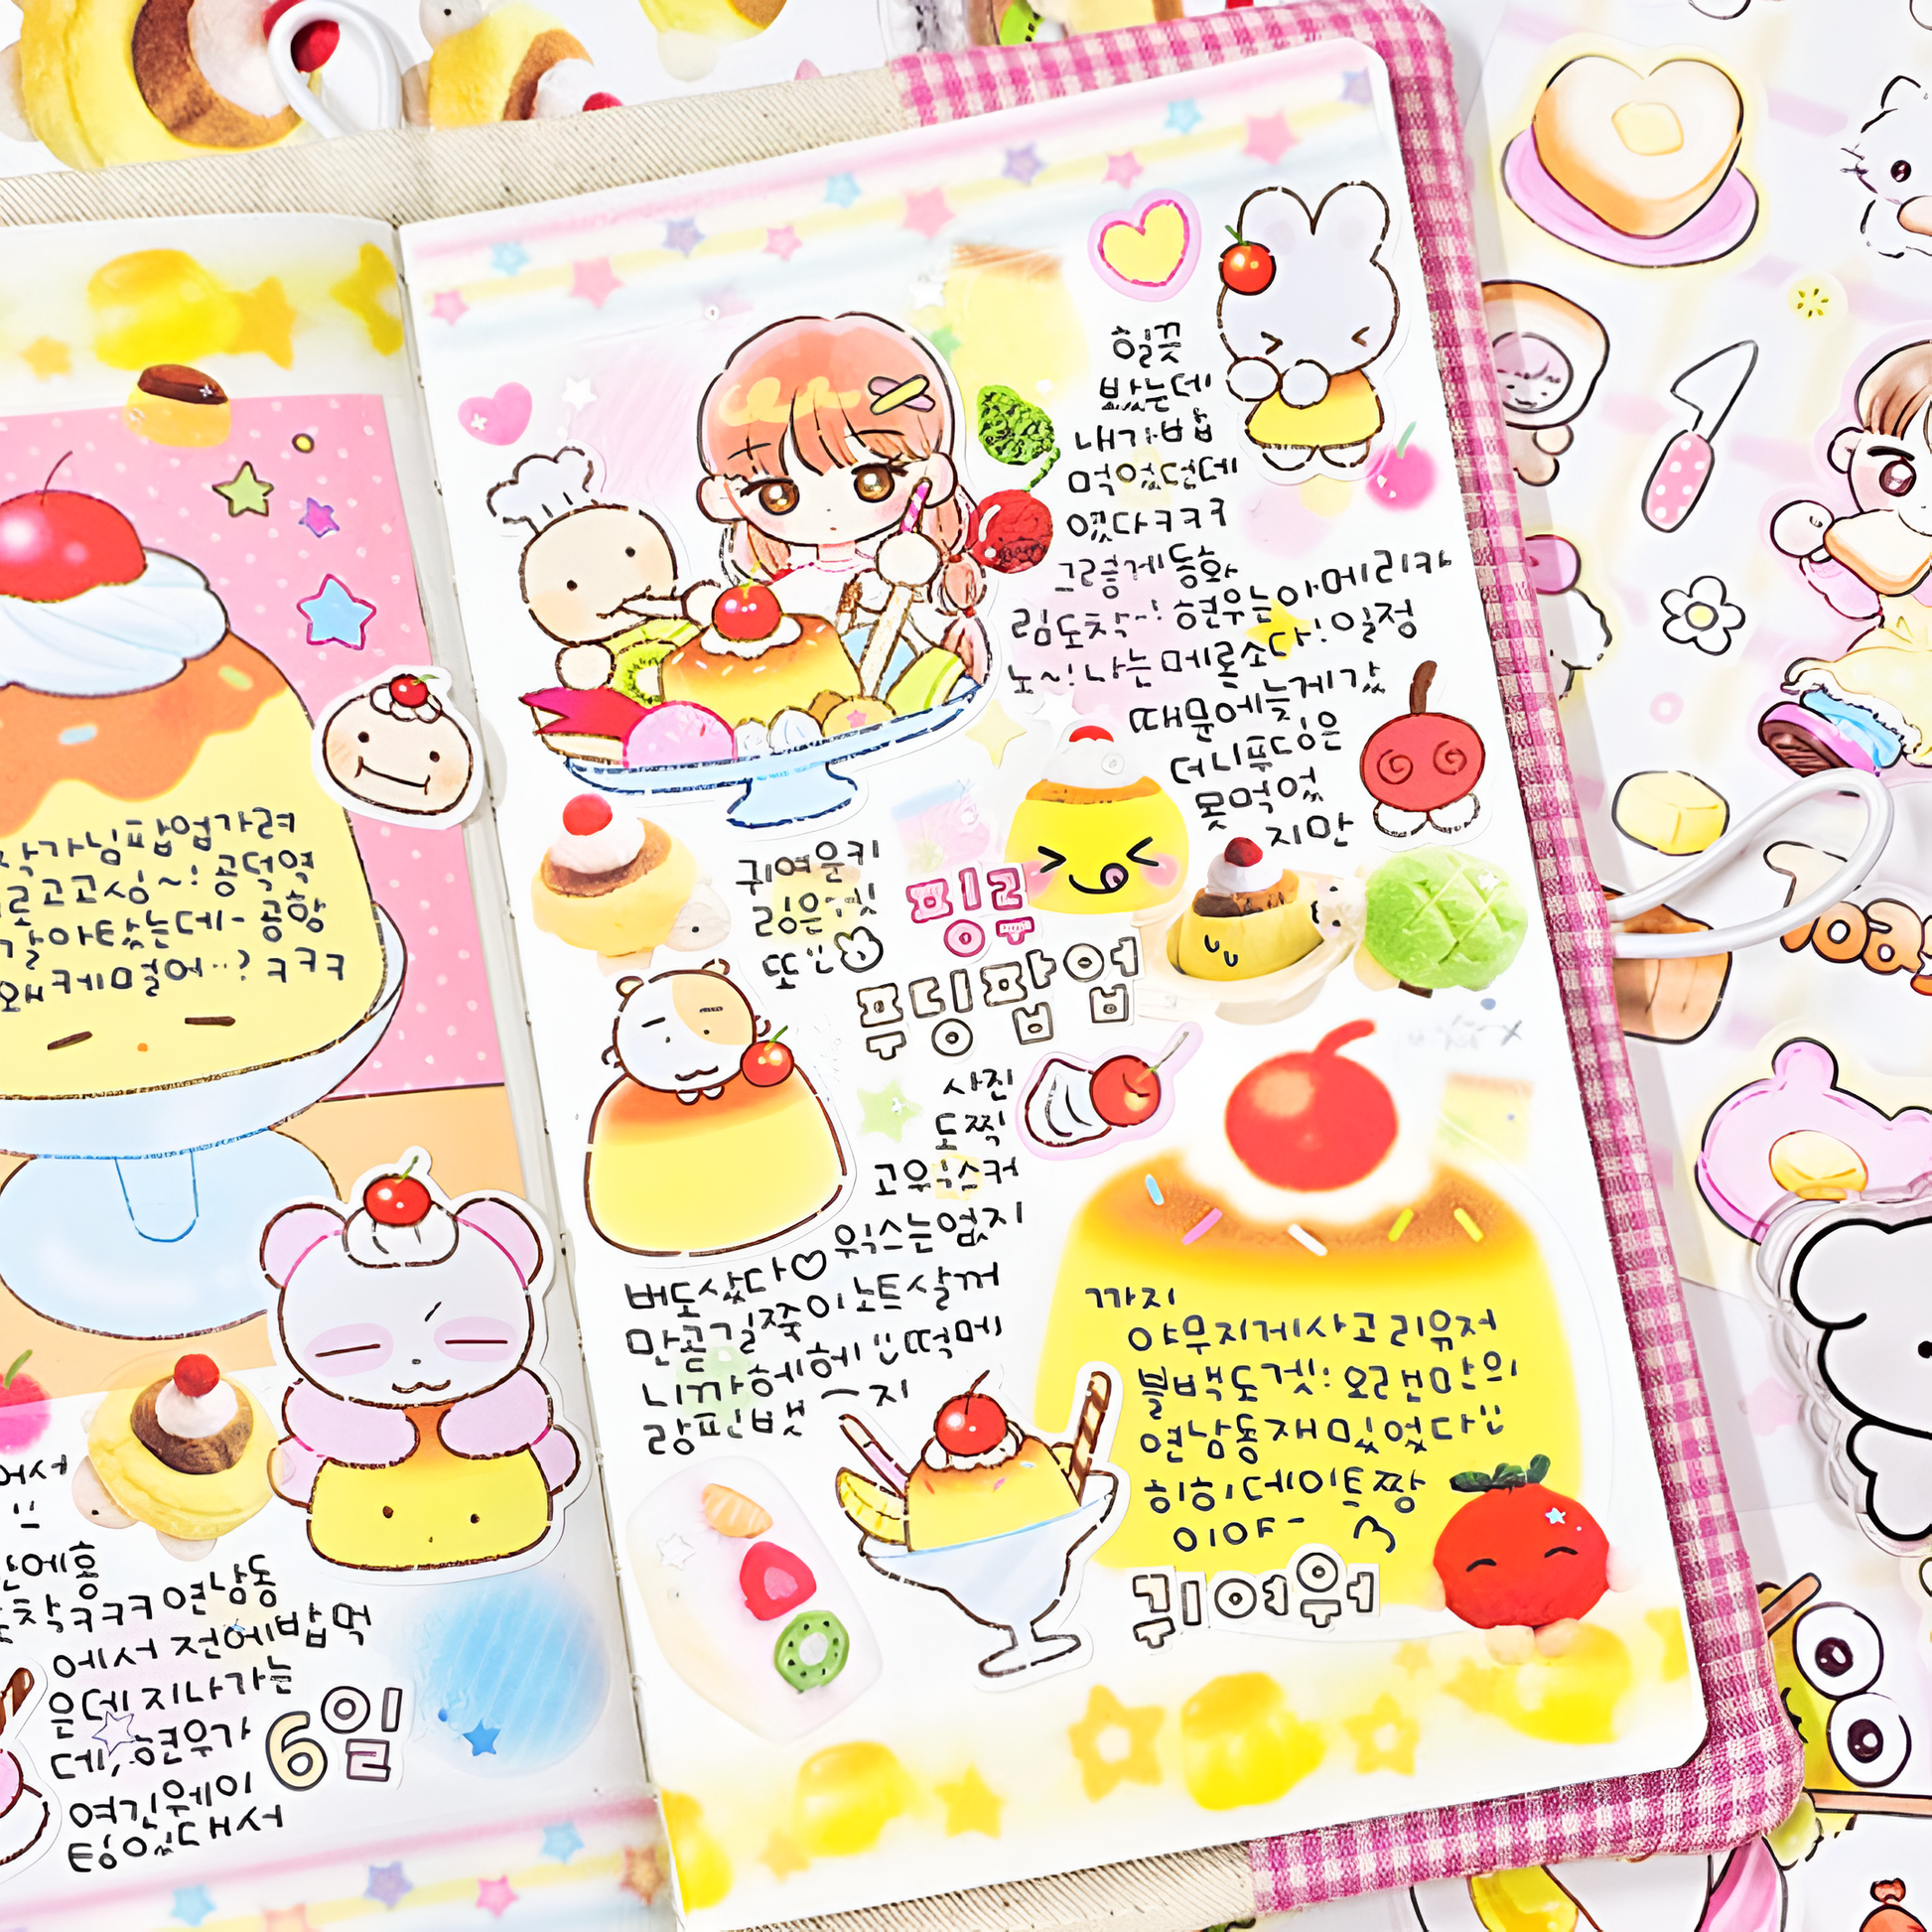 작가님팝업가려
르고고싱~! 공덕역
갈아탔는데~ 공항
왜케멀어..? ㅋㅋㅋ
어서
만에홍
착ㅋㅋㅋ 연남동
에서 전에밥먹
은데 지나가는
데, 현우가
여긴웨이
팅있대서
6일
힐끗
봤는데
내가밥
먹었던데
였다ㅋㅋㅋ
그렇게동화
림도착~! 현우는아메리카
노~! 나는메론소다! 일정
때문에늦게갔
더니푸딩은
못먹었
지만
귀여운키
링은겟
또
핑루
푸딩팝업
사진
도찍
고위시스커
위시는없지
버도샀다♡
만곧길쭉이노트살꺼
니까헤헤 떡메
랑핀뱃지
까지
야무지게사고 리유저
블백도겟! 오랜만의
연남동재밌었다
히히데이트짱
이야~
귀여워